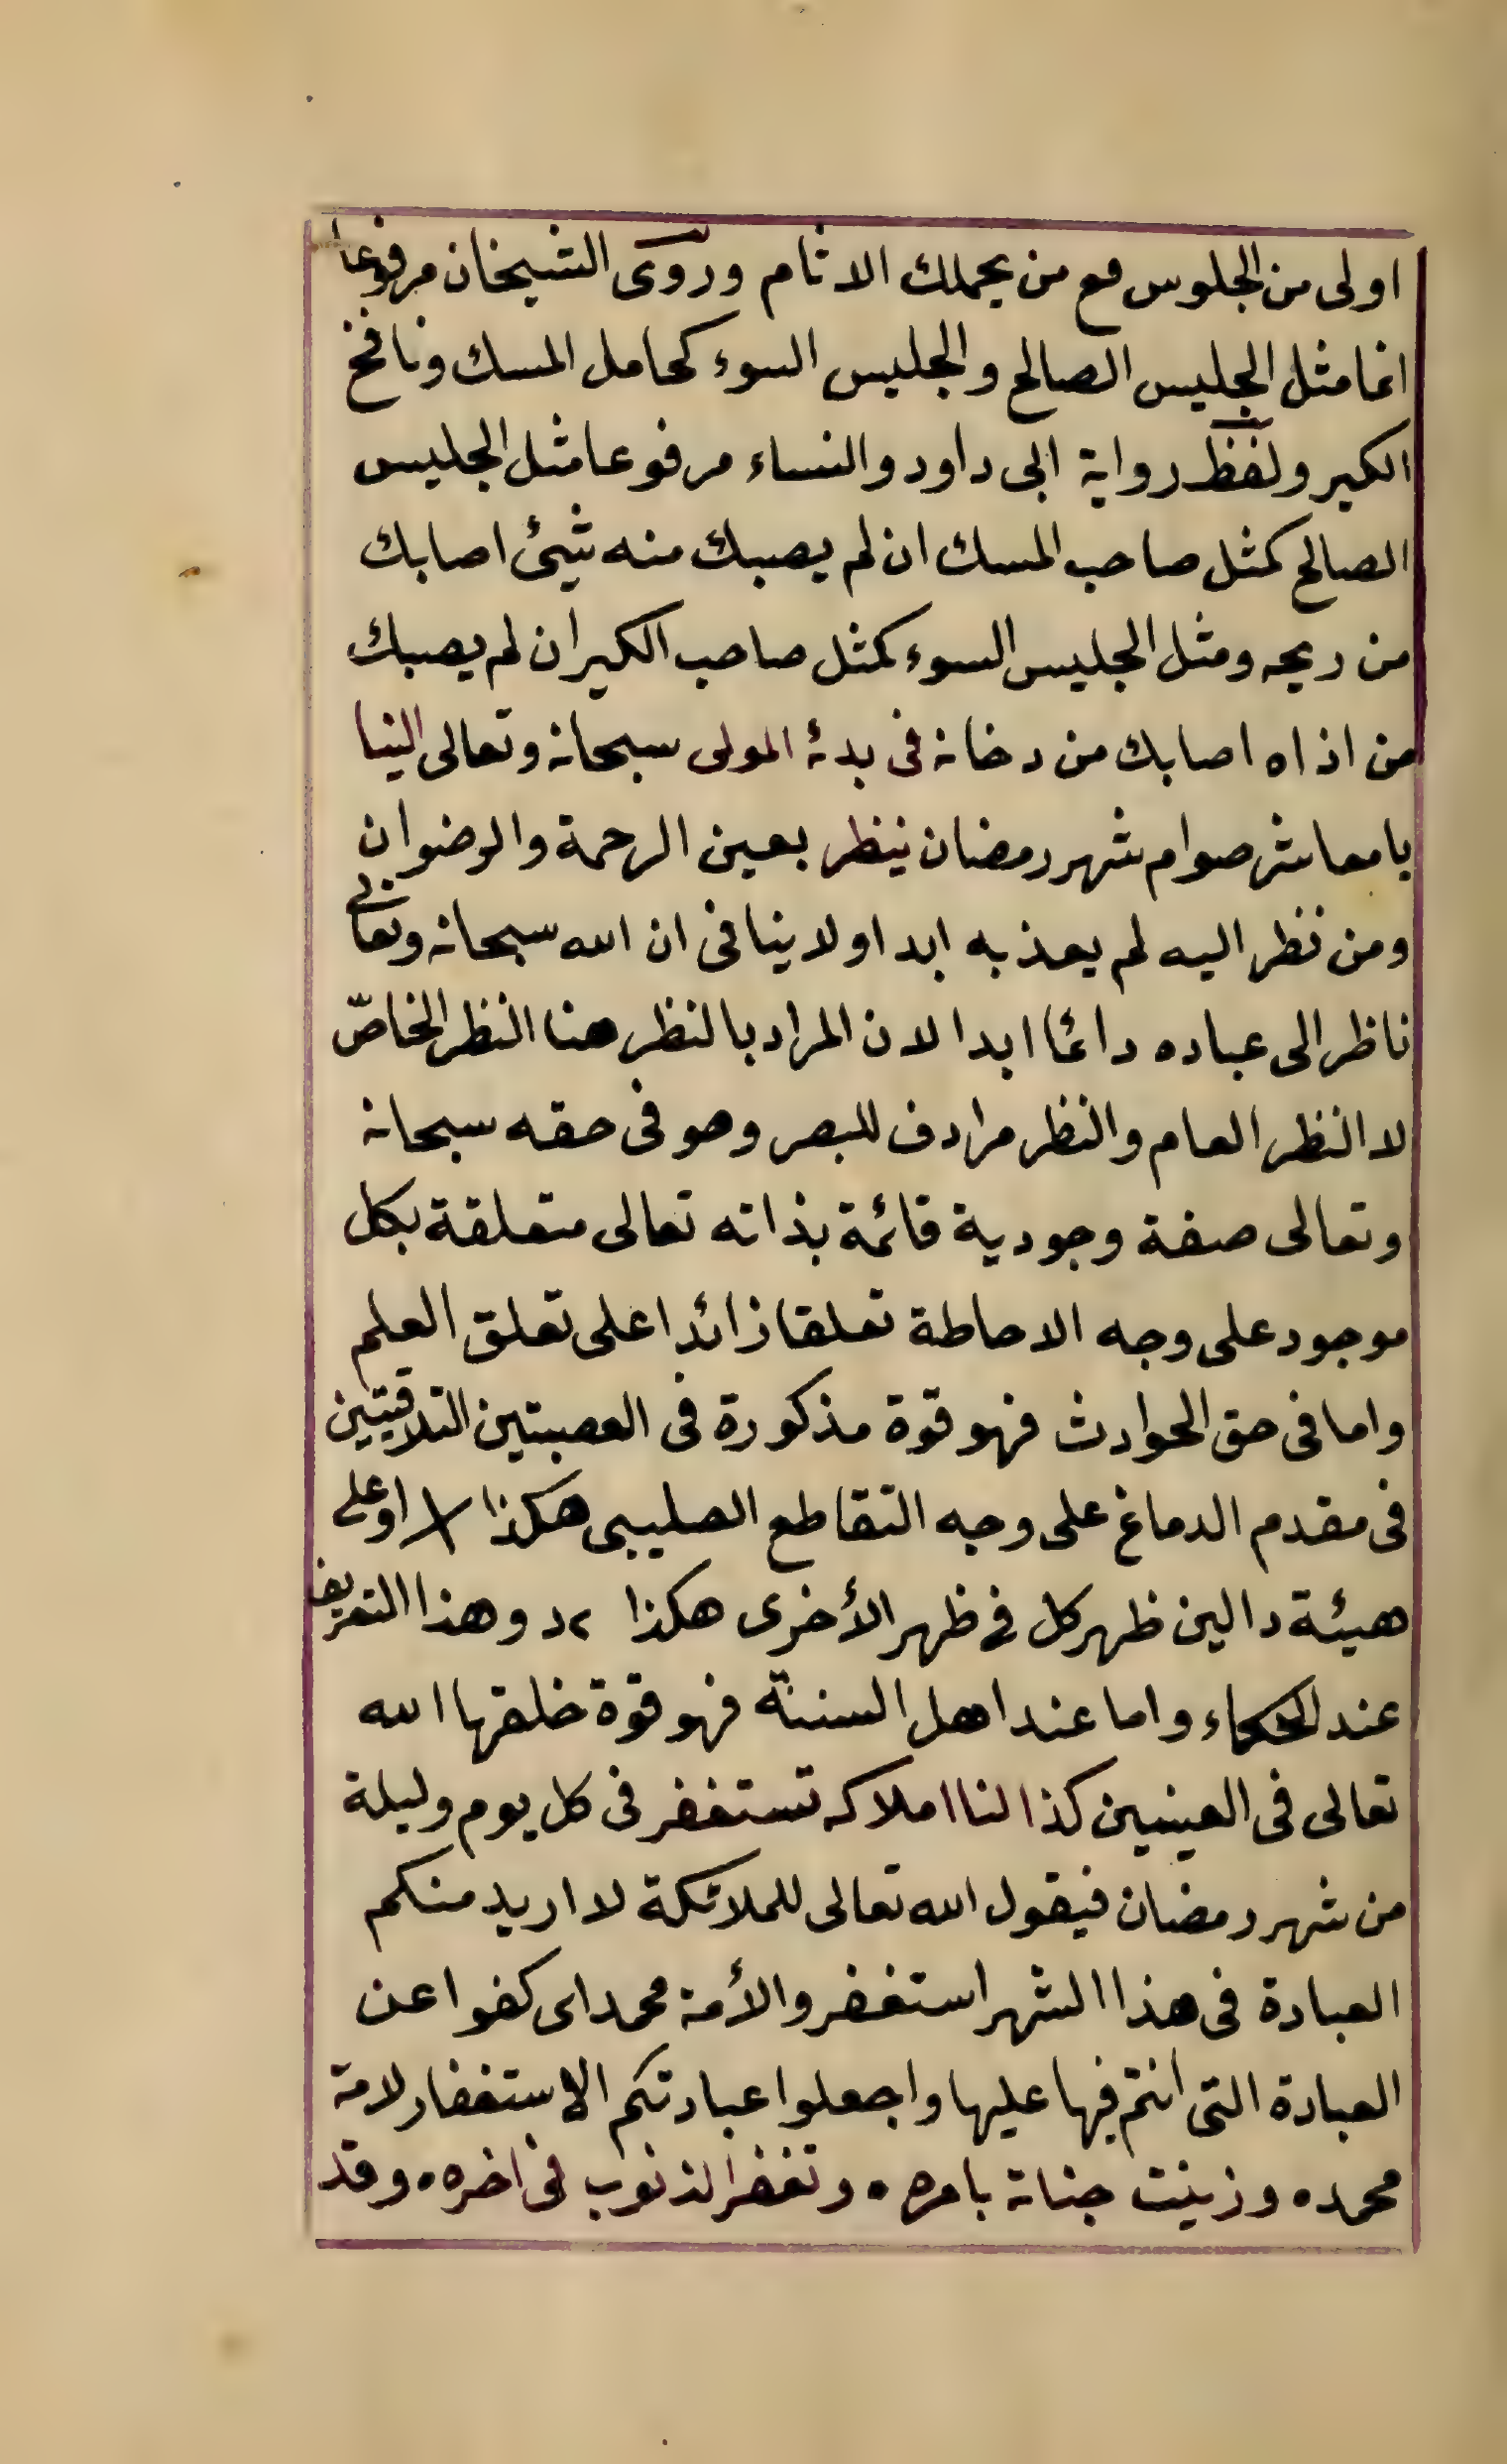 اولى من الجلوس مع من يحملك الاثام وروى الشيخان مرفوعا
انما مثل الجليس الصالح والجليس السوء كحامل المسك ونافخ
الكير ولفظ رواية ابى داود والنساء مرفوعا مثل الجليس
الصالح كمثل صاحب المسك ان لم يصبك منه شيئ اصابك
من ريحه ومثل الجليس السوء كمثل صاحب الكير ان لم يصبك
من اذاه اصابك من دخانه فى بدئه المولى سبحانه وتعالى الينا
يا معاشر صوام شهر رمضان ينظر بعين الرحمة والرضوان
ومن نظر اليه لم يعذبه ابدا ولا ينافى ان الله سبحانه وتعالى
ناظر الى عباده دائما ابدا لان المراد بالنظر هنا النظر الخاصّ
لا النظر العام والنظر مرادف للبصر وهو فى حقه سبحانه
وتعالى صفة وجودية قائمة بذاته تعالى متعلقة بكل
موجود على وجه الاحاطة تعلقا زائدا على تعلق العلم
واما فى حق الحوادث فهو قوة مذكورة فى العصبتين التلاقيتين
فى مقدم الدماغ على وجه التقاطع الصليبى هكذا او على
هيئة دالين ظهر كل فى ظهر الأخرى هكذا وهذا التعريف
عند الحكماء واما عند اهل السننة فهو قوة خلقها الله
تعالى فى العينين كذا لنا املاكه تستغفر فى كل يوم وليلة
من شهر رمضان فيقول الله تعالى للملائكة لا اريد منكم
العبادة فى هذا الشهر استغفروا لأمة محمد اى كفوا عن
العبادة التى انتم فيها عليها واجعلوا عبادتكم الاستغفار لامة
محمد ٠ وزينت جناته بامره ٠ وتغفر الذنوب فى اخره ٠ وقد